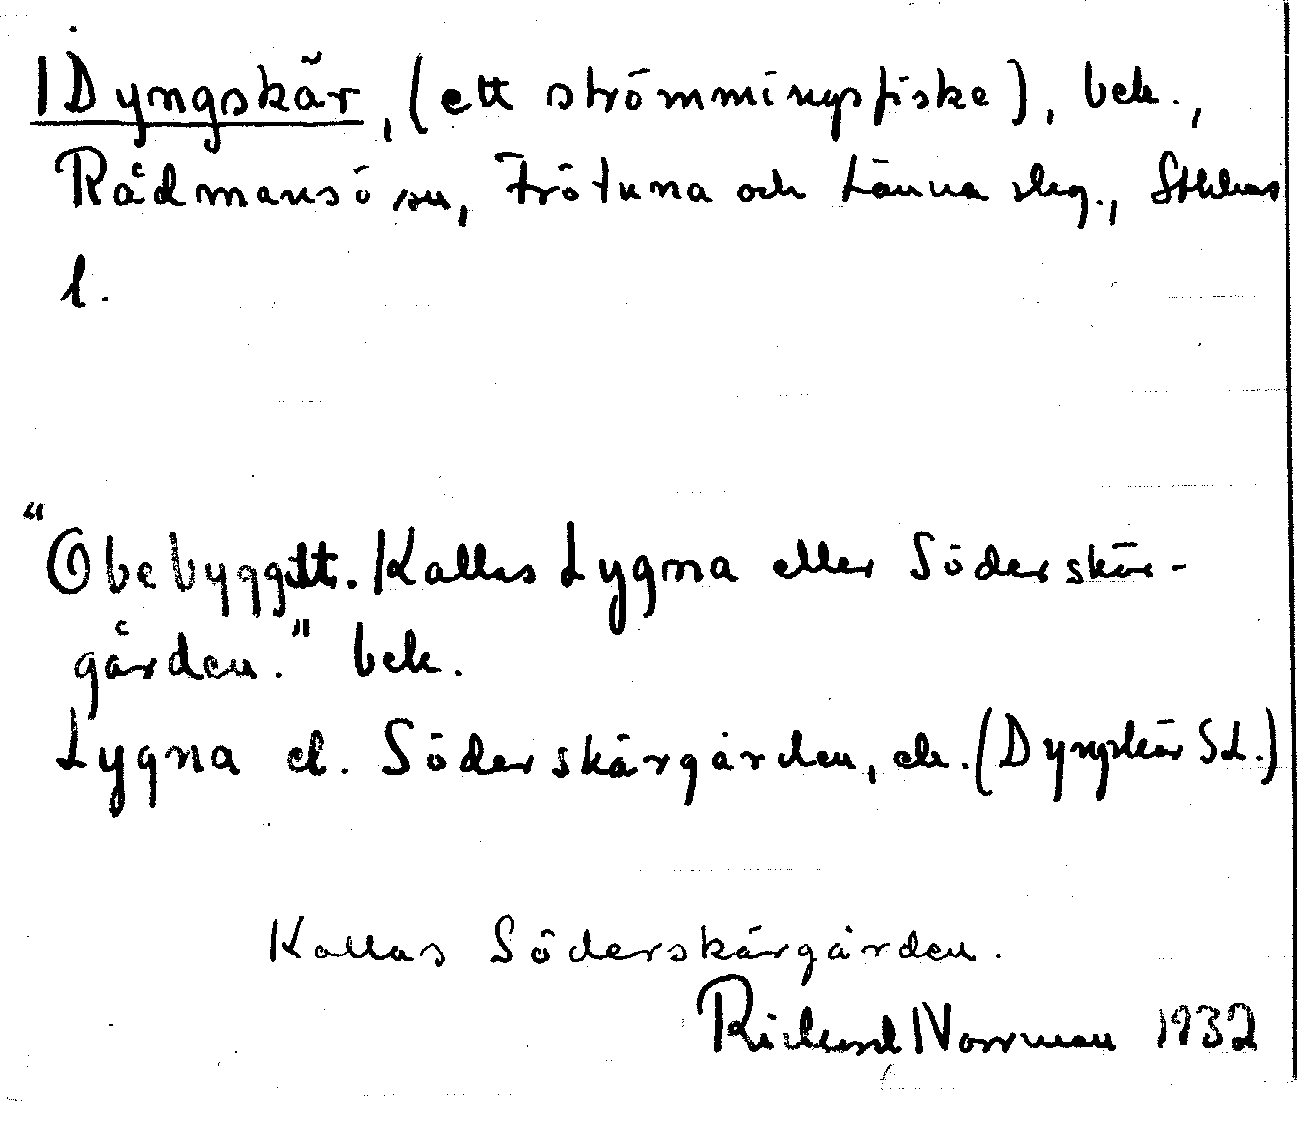 1 Dyngskär, (ett strömmingsfiske), bek.,
Rådmansö sn, Frötuna och Länna skg., Sthlms
l.
"Obebyggtt. Kallas Lygna eller Söderskär-
gården." bek.
Lygna el. Söderskärgården, ek. (Dyngskär SL.)
Kallas Söderskärgården.
Richard Norrman 1932